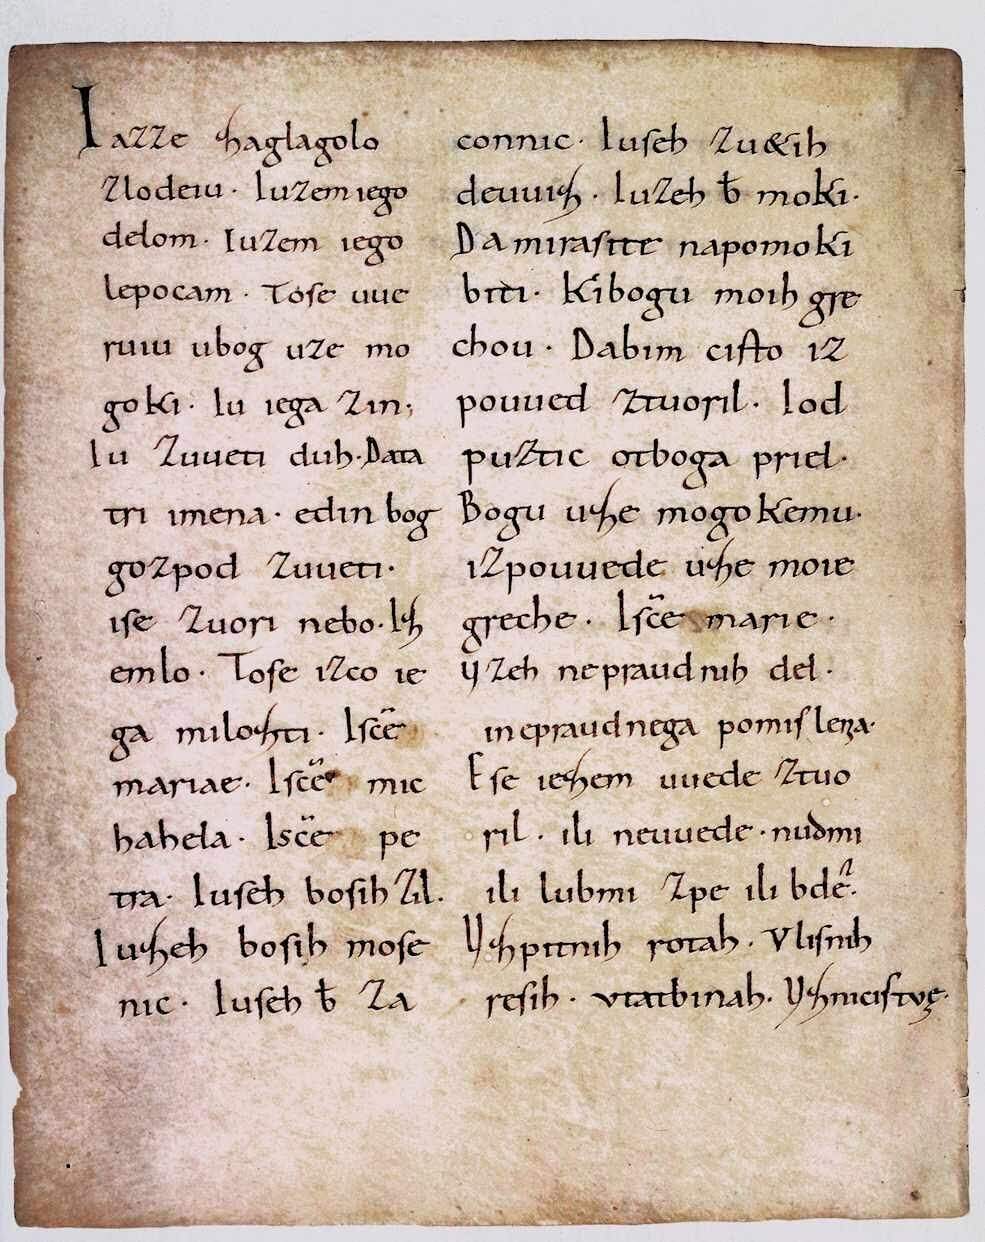 Iazze zaglagolo
zlodeiu· Iuzem iego
delom· Iuzem iego
lepocam· Tose uue
ruiu ubog uze mo
goki· Iu iega zin;
Iu zuueti duh· Data
tri imena· edin bog
gozpod zuueti·
ise zuori nebo· Iz
emlo· Tose izco ie
ga milozti· Iscẽ
mariae· Iscẽ mic
hahela· Iscẽ pe
tra· Iuseh bosih zil·
Iuzeh bosih mose
nic· Iuseh ƀ za
connic· Iuseh zu&ih
deuuiz· Iuzeh ƀ moki·
Da mirasite napomoki
biti· Kibogu moih gre
chou· Dabim cisto iz
pouued ztuoril· Iod
puztic otboga priel·
Bogu uze mogokemu·
izpouuede uze moie
greche· Iscẽ marie·
Yzeh nepraudnih del·
inepraudnega pomislenza·
Ese iezem uuede ztuo
ril· ili neuuede· nudmi
ili lubmi zpe ili bdeͬ·
Yzpitnih rotah· Vlisnih
resih· vtatbinah· Yznicistvę·